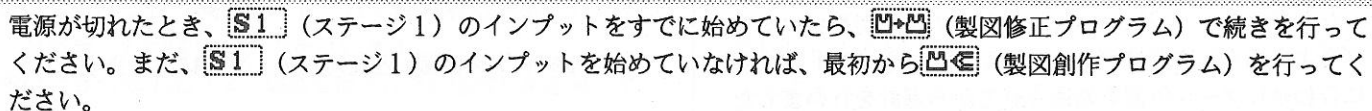 電源が切れたとき、S1（ステージ1）のインプットをすでに始めていたら、（製図修正プログラム）で続きを行って
ください。まだ、S1（ステージ1）のインプットを始めていなければ、最初から（製図創作プログラム）を行ってく
ださい。